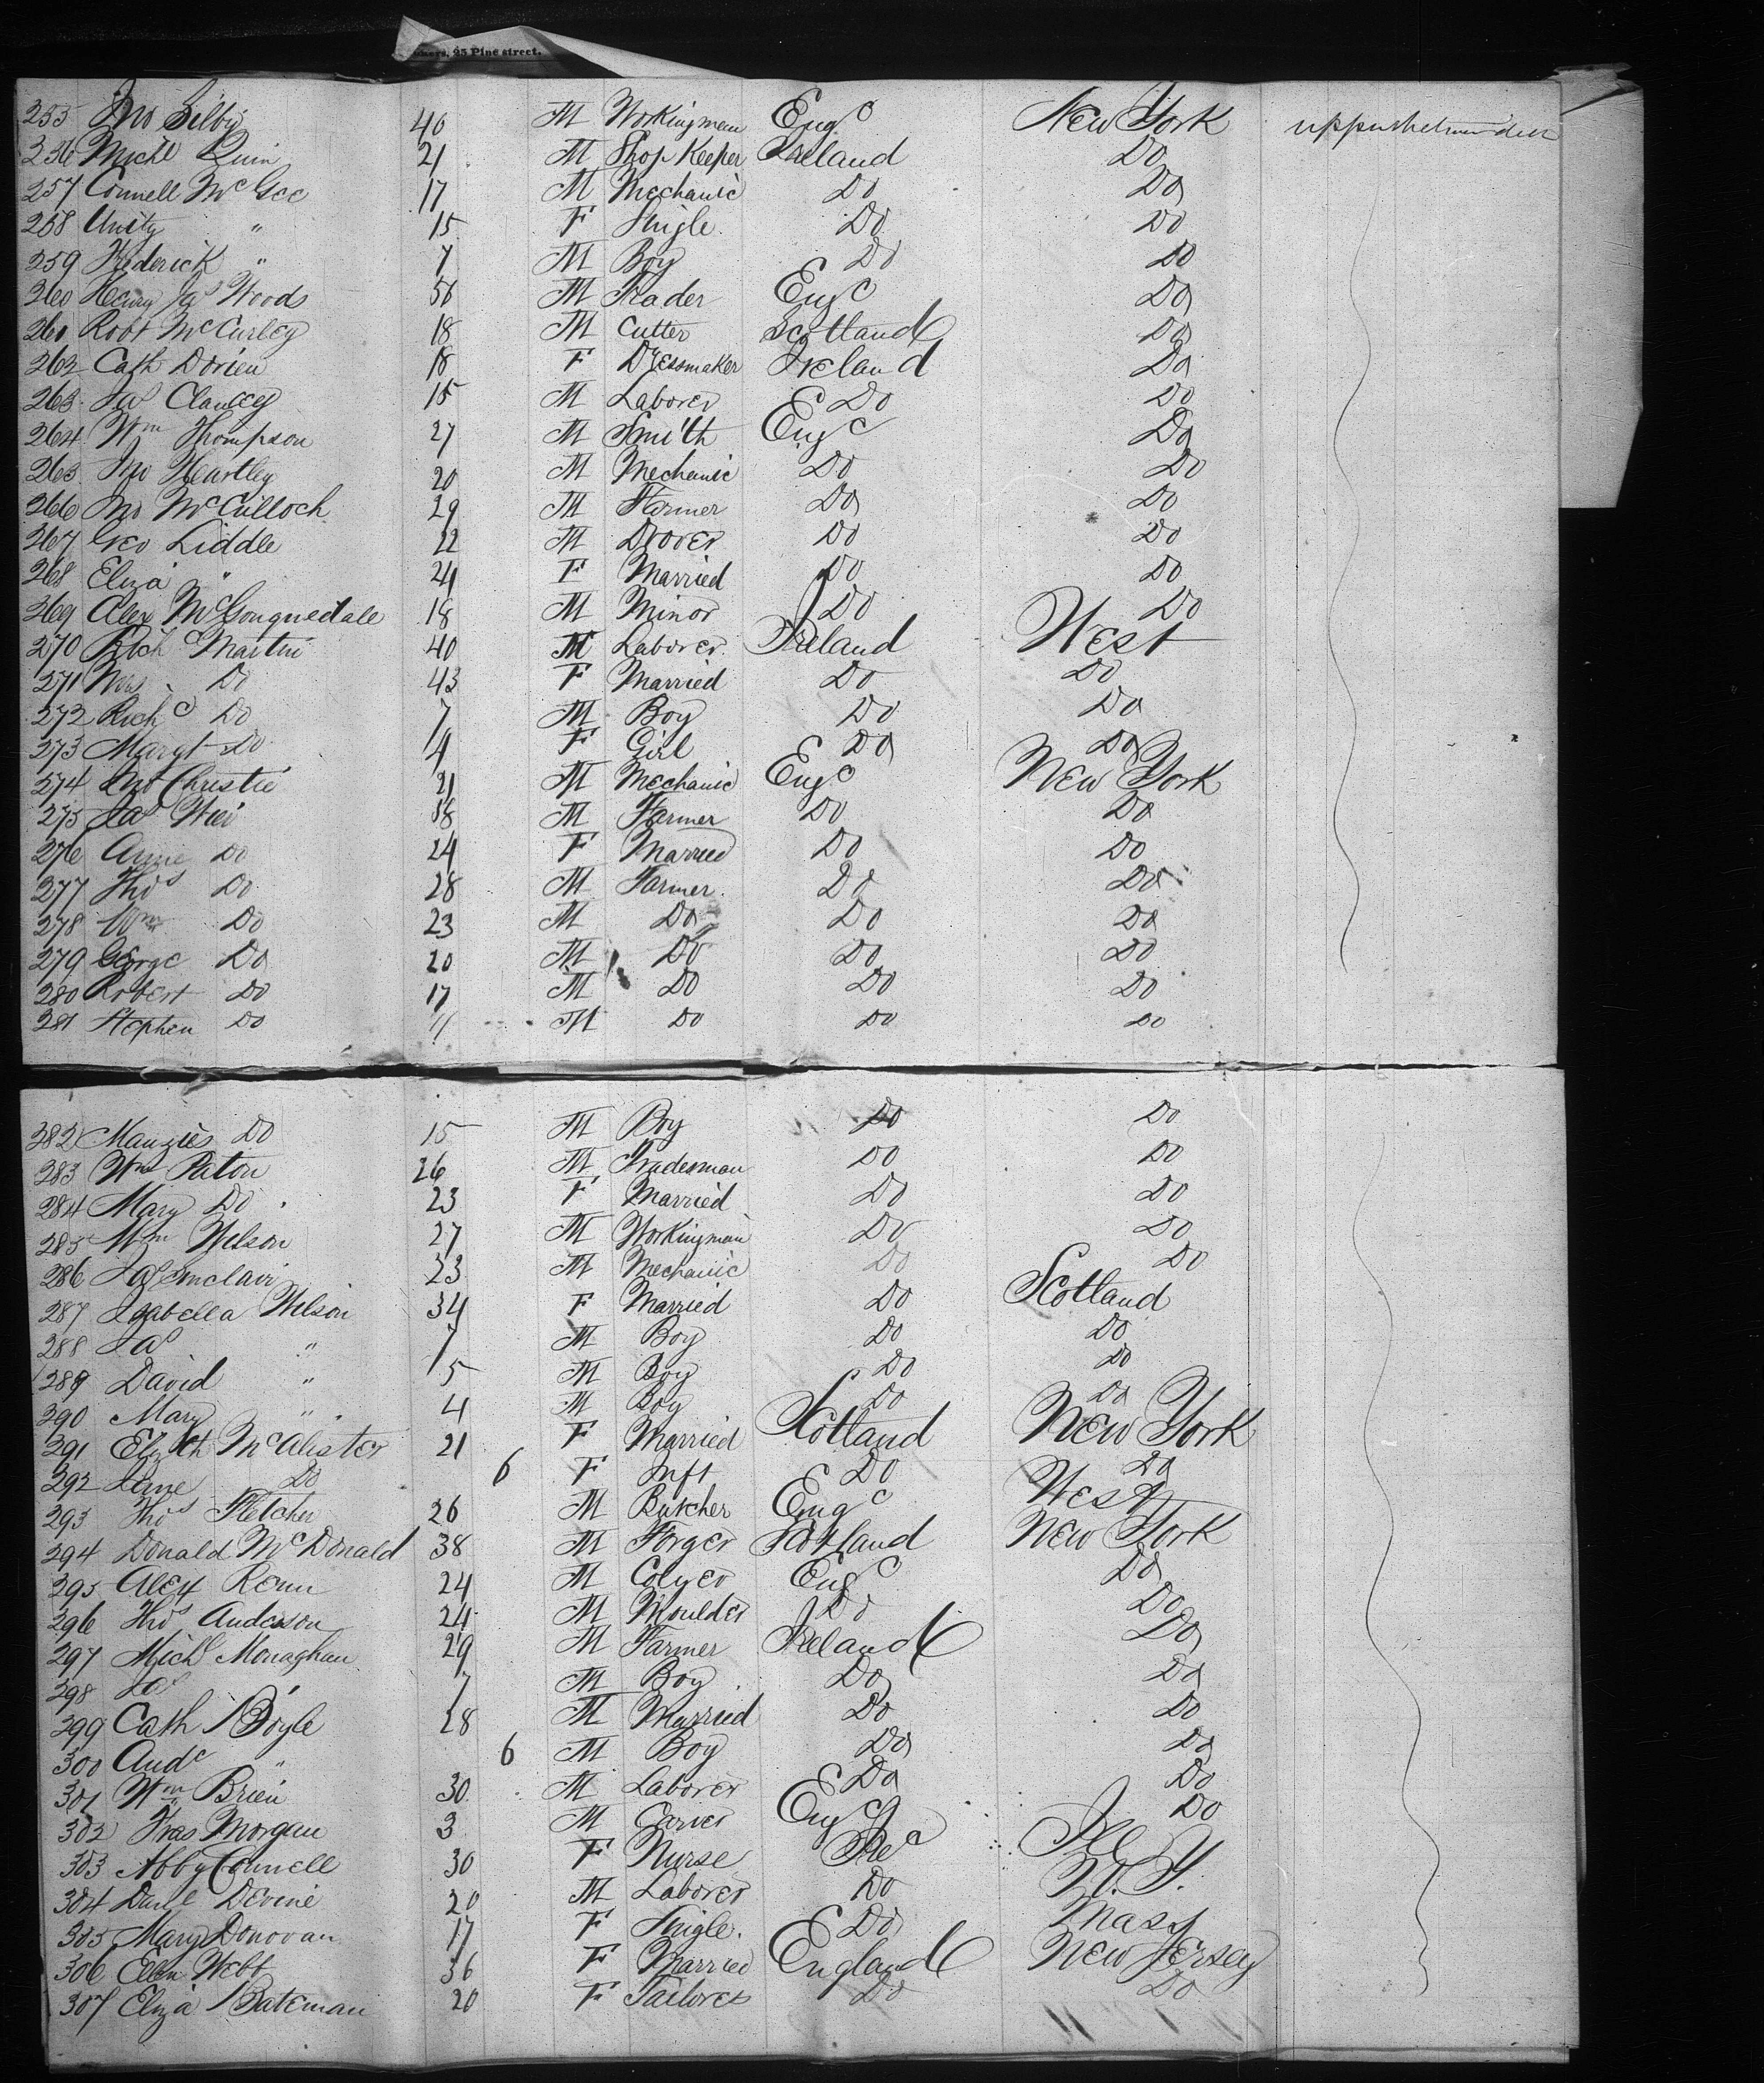 25 Pine street.
255 Jno Silby 40 M Workingman Engd New York
256 Michl Quin 21 M Shop Keeper Ireland Do
257 Connell McGee 17 M Mechanic Do Do
258 Unity " 15 F Single Do Do
259 Frederick " 7 M Boy Do Do
260 Henry Jas Woods 56 M Trader Engd Do
261 Robt McCurley 18 M Cutter Scotland Do
262 Cath Dorien 18 F Dressmaker Ireland Do
263 Jas Clancey 15 M Laborer Do Do
264 Wm Thompson 27 M Smith Engd Do
265 Jno Heartley 20 M Mechanic Do Do
266 Jno McCulloch 29 M Farmer Do Do
267 Geo Liddle 22 M Drover Do Do
268 Eliza " 24 F Married Do Do
269 Alex McGonquedale 18 M Minor Do Do
270 Rich Martin 40 M Laborer Ireland West
271 Mrs Do 43 F Married Do Do
272 Richd Do 7 M Boy Do Do
273 Margt Do 4 F Girl Do Do
274 Jno Christie 21 M Mechanic Engd New York
275 Jas Weir 58 M Farmer Do Do
276 Annie Do 24 F Married Do Do
277 Thos Do 28 M Farmer Do Do
278 Wm Do 23 M Do Do Do
279 George Do 20 M Do Do Do
280 Robert Do 17 M Do Do Do
281 Stephen Do 11 M Do Do Do
282 Manzies Do 15 M Boy Do Do
283 Wm Paton 26 M Tradesman Do Do
284 Mary Do 23 F Married Do Do
285 Wm Welson 27 M Workingman Do Do
286 Jas Sinclair 23 M Mechanic Do Do
287 Isabella Wilson 34 F Married Do Scotland
288 Jas " 7 M Boy Do Do
289 David " 5 M Boy Do Do
290 Mary " 4 M Boy Do Do
291 Elizth McAlister 21 F Married Scotland New York
292 Jane Do 6 F Inft Do Do
293 Thos Fletcher 26 M Butcher Engd West
294 Donald McDonald 38 M Forger Scotland New York
295 Alex Renn 24 M Colyer Engd Do
296 Thos Anderson 24 M Moulder Do Do
297 Michl Monaghan 29 M Farmer Ireland Do
298 Jas 7 M Boy Do Do
299 Cath Boyle 28 M Married Do Do
300 Andw " 6 M Boy Do Do
301 Wm Brien 30 M Laborer Do Do
302 Fras Morgan 3 M Carver Engd Do
303 Abby Connell 30 F Nurse Ired Ill
304 Danl Devine 20 M Laborer Do N. Y.
305 Mary Donovan 17 F Single Do Mass
306 Ellen Webb 36 F Married England New Jersey
307 Eliza Bateman 20 F Tailores Do Do